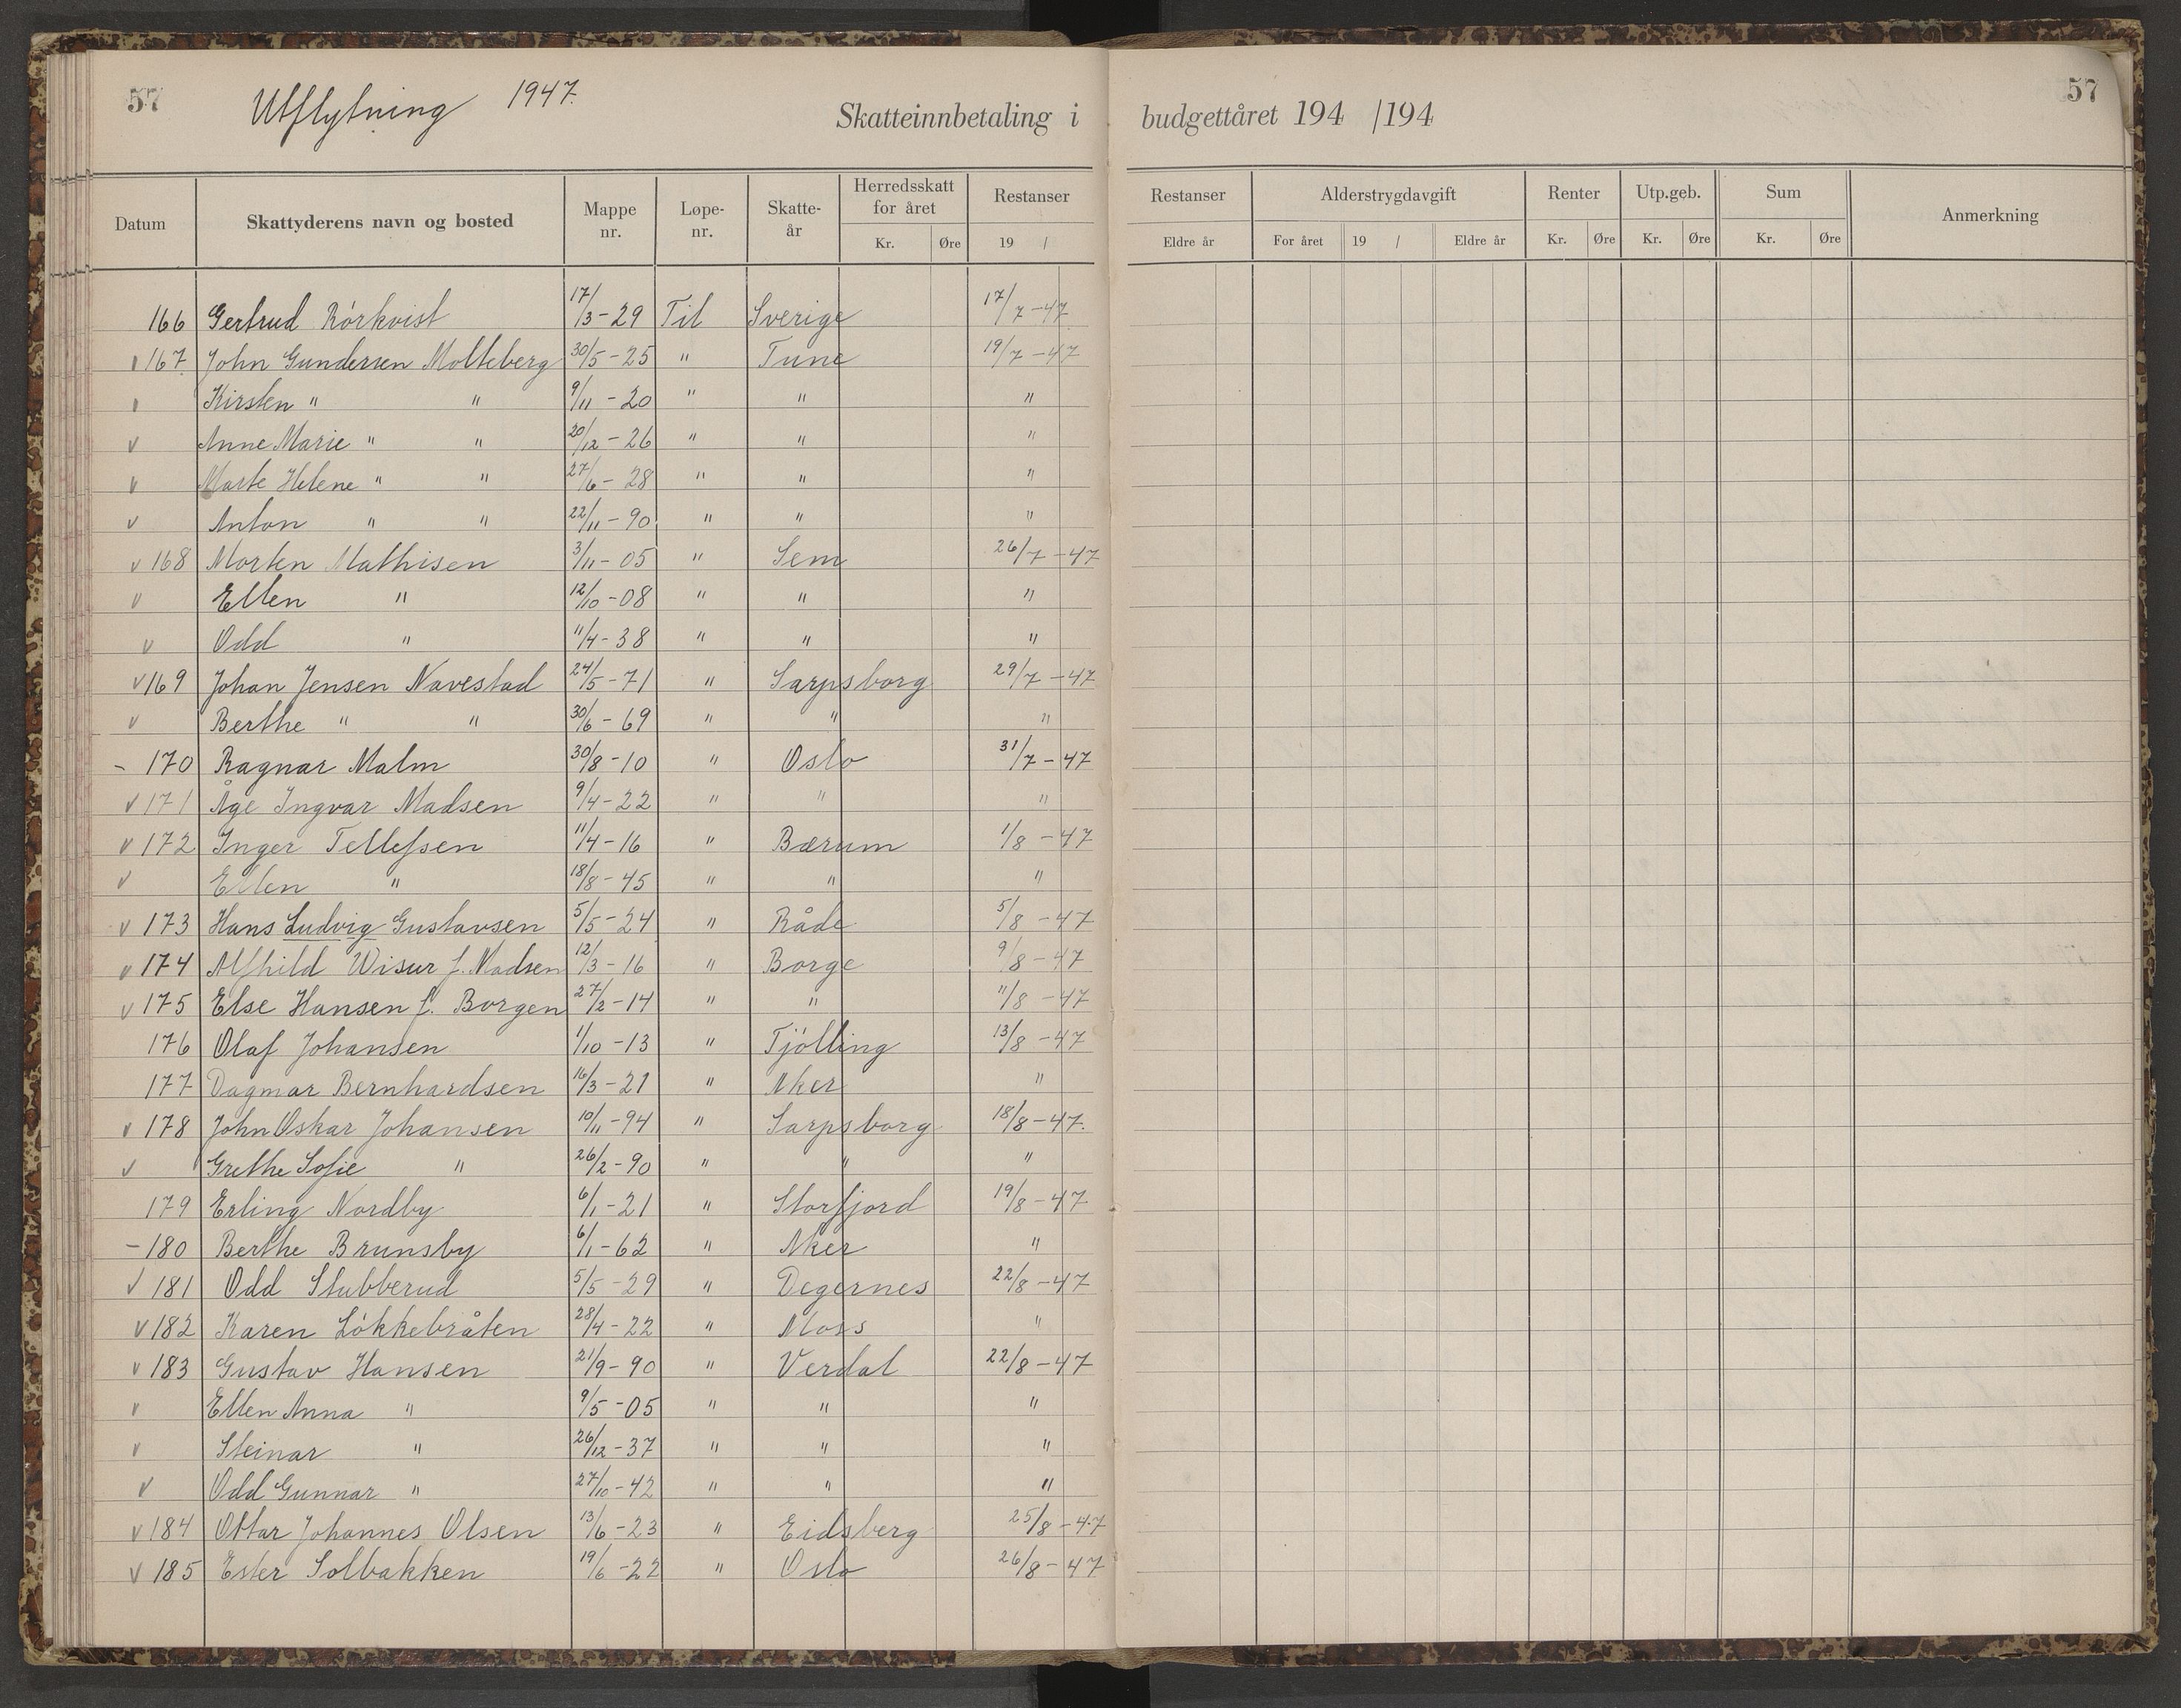 57 Utflytning 1947. Skatteinnbetaling i budgettåret 194 /194 57
Datum Skattyderens navn og bosted Mappe nr. Løpe-nr. Skatte-år Herredsskatt for året Restanser Restanser Alderstrygdavgift Renter Utp.geb. Sum Anmerkning
Kr. Øre 19 / Eldre år For året 19 / Eldre år Kr. Øre Kr. Øre Kr. Øre
166 Gertrud Rórkvist 17/3-29 Til Sverige 17/7-47
v 167. John Gundersen Molteberg 30/5-25 " Tune 19/7-47
v Kirsten " " 9/11-20 " " "
v Anne Marie " " 20/12-26 " " "
v Marte Helene " " 27/6-28 " " "
v Anton " " 22/11-90 " " "
v 168 Morten Mathisen 3/11-05 " Sem 26/7-47
v Ellen " 12/10-08 " " "
v Odd " 11/4-38 " " "
v 169 Johan Jensen Navestad 24/5-71 " Sarpsborg 29/7-47
v Berthe " " 30/6-69 " " "
- 170 Ragnar Malm 30/8-10 " Oslo 31/7-47
v 171 Åge Ingvar Madsen 9/4-22 " " "
v 172 Inger Tellefsen 11/4-16 " Bærum 1/8-47
v Ellen " 18/8-45 " " "
v 173 Hans Ludvig Gustavsen 5/5-24 " Råde 5/8-47
v 174 Alfhild Wisur f. Madsen 12/3-16 " Borge 9/8-47
v 175 Else Hansen f. Borgen 27/2-14 " " 11/8-47
176 Olaf Johansen 1/10-13 " Tjólling 13/8-47
177 Dagmar Bernhardsen 16/3-21 " Aker "
v 178 John Oskar Johansen 10/11-94 " Sarpsborg 18/8-47.
v Grethe Sofie " 26/2-90 " " "
179 Erling Nordby 6/1-21 " Storfjord 19/8-47
- 180 Berthe Brunsby 6/1-62 " Aker "
v 181 Odd Stubberud 5/5-29 " Degernes 22/8-47
v 182 Karen Lókkebråten 28/4-22 " Moss "
v 183 Gustav Hansen 21/9-90 " Verdal 22/8-47
v Ellen Anna " 9/5-05 " " "
v Steinar " 26/12-37 " " "
v Odd Gunnar " 27/10-42 " " "
v 184 Ottar Johannes Olsen 13/6-23 " Eidsberg 25/8-47
v 185 Ester Solbakken 19/6-22 " Oslo 26/8-47